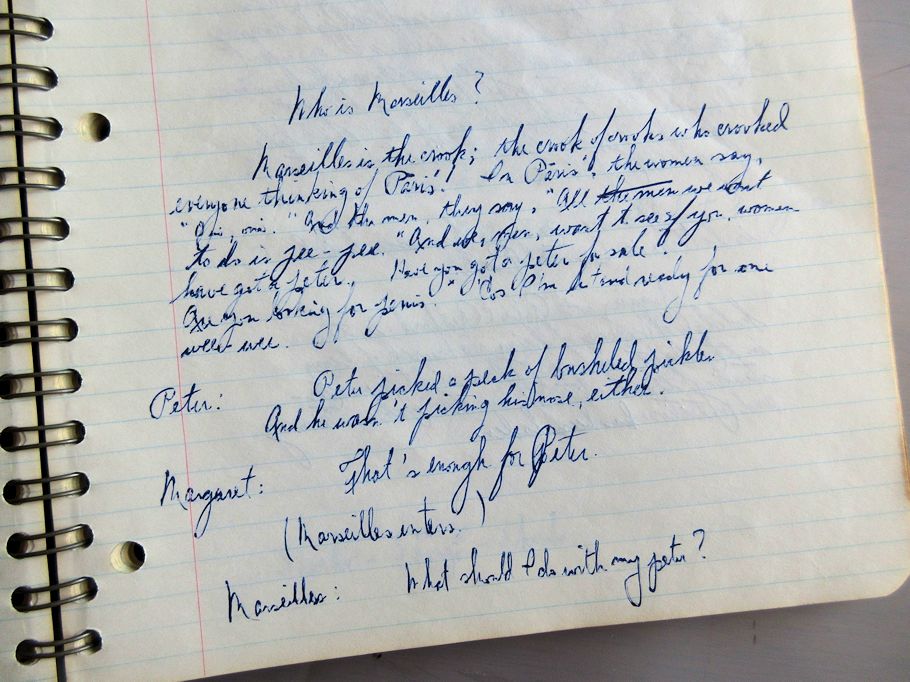 Who is Marseilles?
Marseilles is the crook; the crook of crooks who crooked
everyone thinking of "Paris." "In Paris", the women say,
"Oui, oui." And the men, they say, "All the men we want
to do is pee-pee. "And we, men, want to see if you, women
have got a peter. Have you got a peter for sale?
Are you looking for penis." "Cos I'm hot and ready for one
wee-wee.
Peter: Peter picked a peck of busheled pickles
And he wasn't picking his nose, either.
Margaret: That's enough for Peter.
(Marseilles enters.)
Marseilles: What should I do with my peter?